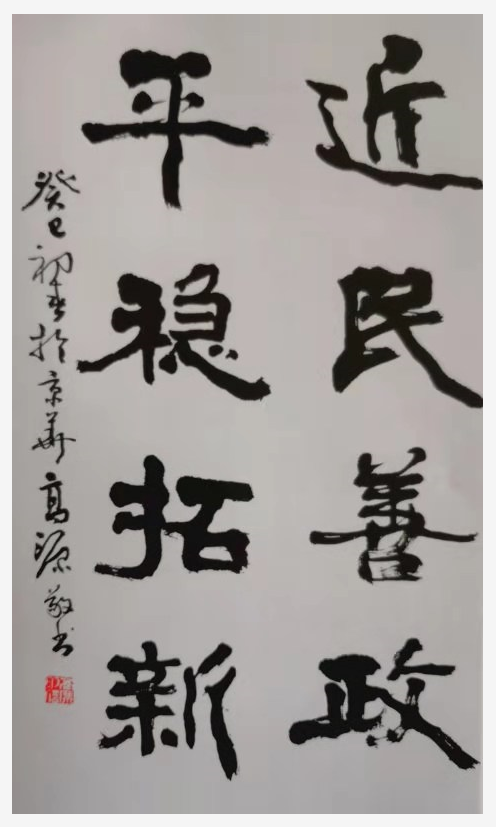 近民善政
平稳拓新
癸巳初春於京華高源敬书